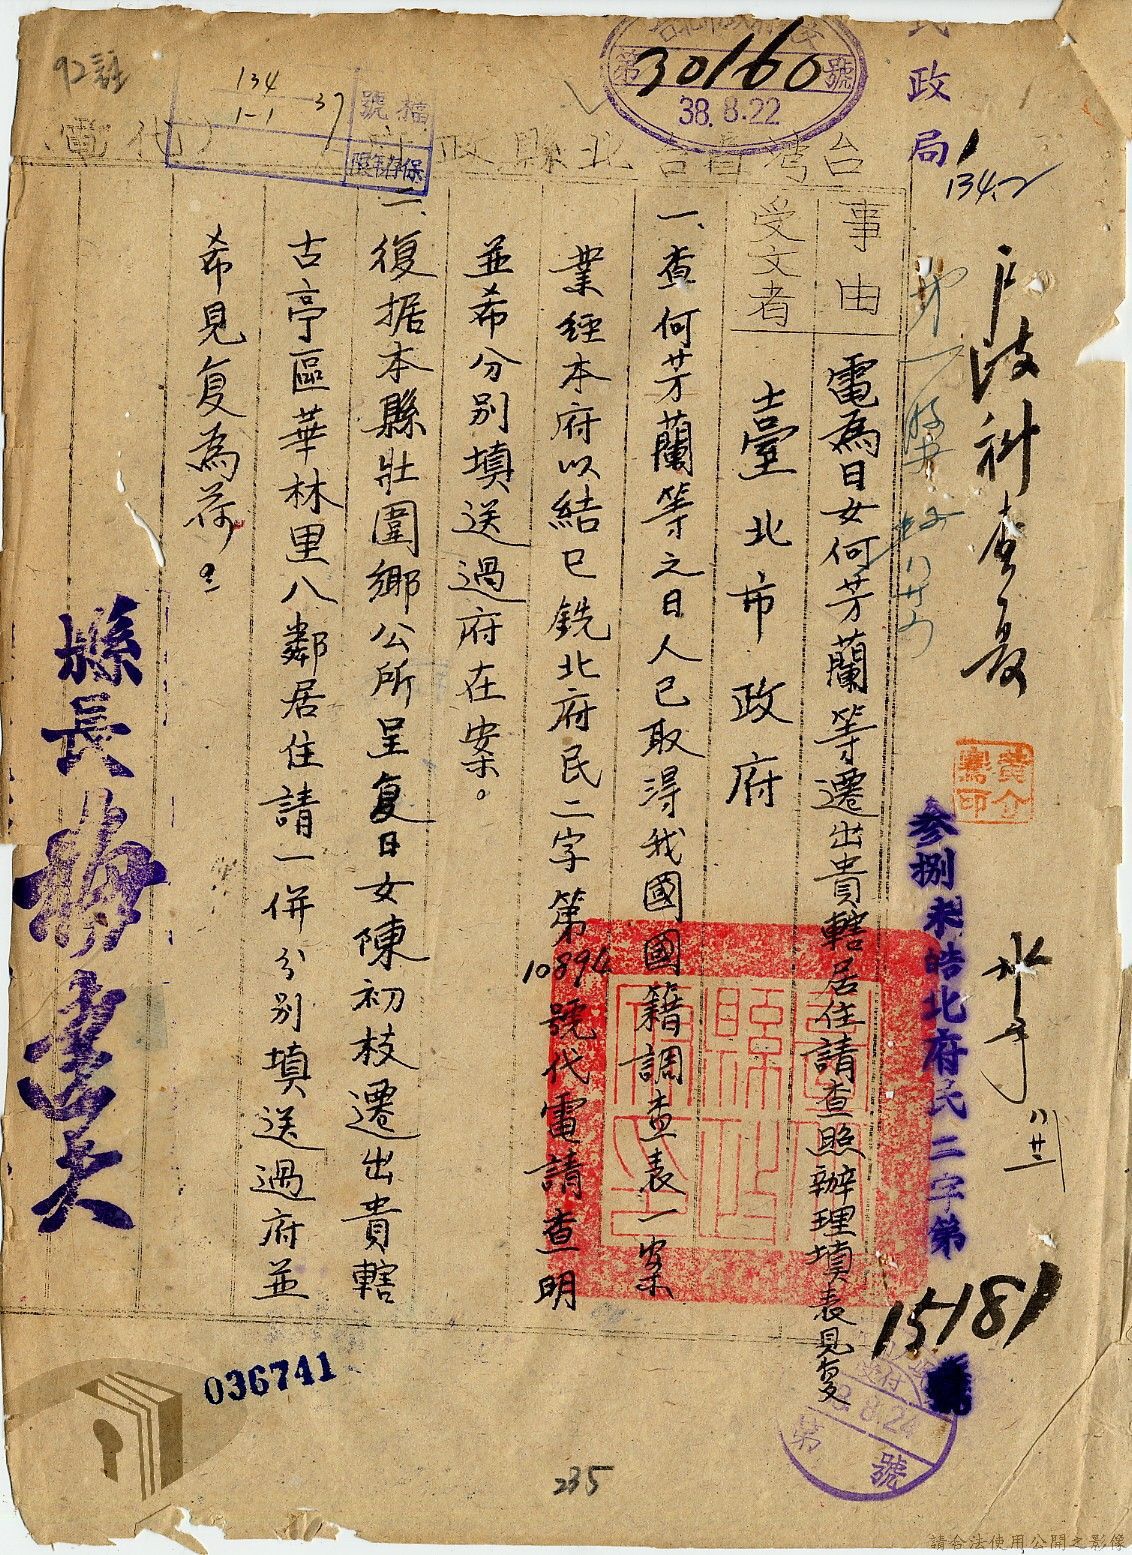 民政局
30160
第 號
38.8.22
134
1-1
37
檔號
保存年限
台灣省台北縣政府
(代電)
事由
電為日女何芳蘭等遷出貴轄居住請查照辦理填表見复
受文者
臺北市政府
一、查何芳蘭等之日人已取得我國國籍調查表一案
業經本府以結巳銑北府民二字第10894號代電請查明
並希分別填送過府在案。
二、復据本縣壯圍鄉公所呈复日女陳初枝遷出貴轄
古亭區華林里八鄰居住請一併分別填送過府並
希見复為荷。
縣長梅達夫
參捌未皓北府民二字第
15181
號
8.24
第 號
036741
235
請合法使用公開之影像